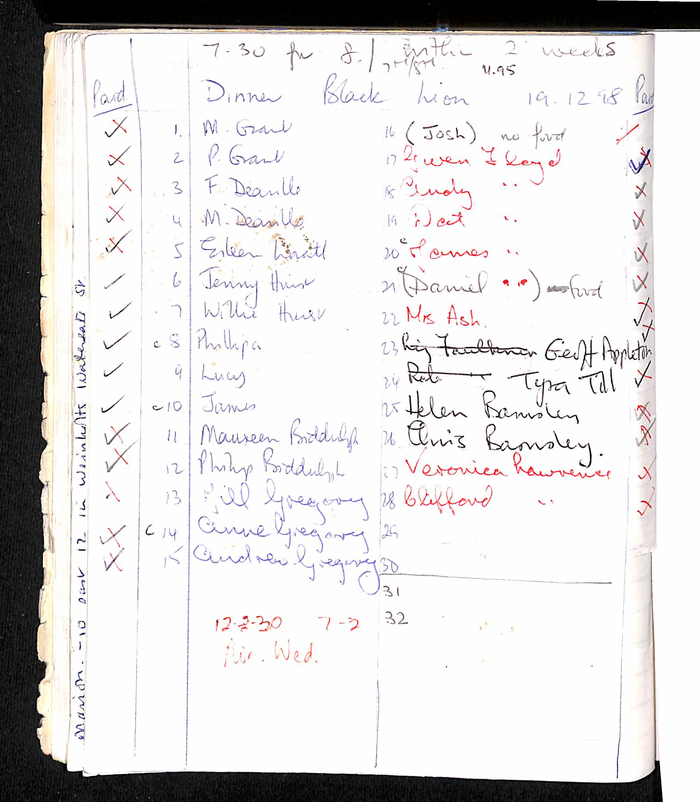 7.30 for 8. within 2 weeks
11.95
Paid Dinner Black Lion 19.12.98 Paid
1. M. Grant
2 P. Grant
3 F. Deaville
4 M. Deaville
5 Eileen
6 Jenny Hurst
7 Willie Hurst
c 8 Phillipa
9 Lucy
c 10 James
11 Maureen Biddulph
12 Philip Biddulph
13 Jill Gregory
c 14 Anne Gregory
15 Andrew Gregory
16 (Josh) no food
17 Gwen Lloyd
18 Cindy "
19 Nat "
20 c James "
21 c (Daniel " ) no food
22 Mrs Ash.
23 Faulkner Geoff Appleton
24 Rob " Tysa Till
25 Helen Barnsley
26 Chris Barnsley.
27 Veronica Lawrence
28 Clifford "
29
30
31
32
12-2.30 7-2
Wed.
Marion. - 10 past 12 in